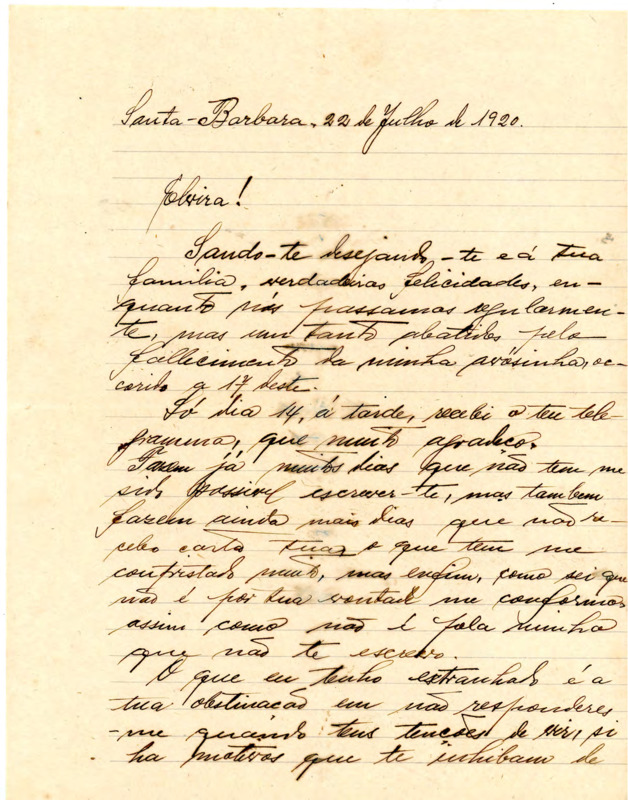 Santa-Barbara, 22 de Julho de 1920.
Elvira!
Saudo-te desejando-te e á tua
familia, verdadeiras felicidades, en-
quanto nós passamos regularmen-
te, mas um tanto abatidos pelo
fallecimento da minha avósinha, oc-
corido a 17 deste.
Só dia 14, á tarde, recebi o teu tele-
gramma, que muito agradeço.
Fazem já muitos dias que não tem me
sido possivel escrever-te, mas tambem
fazem ainda mais dias que não re-
cebo carta tua o que tem me
contristado muito, mas enfim, como sei que
não é por tua vontade me conformo
assim como não é pela minha
que não te escrevo.
O que eu tenho extranhado é a
tua obstinacão em não responderes
-me quando tens tencões de vir, si
ha motivos que te inhibam de